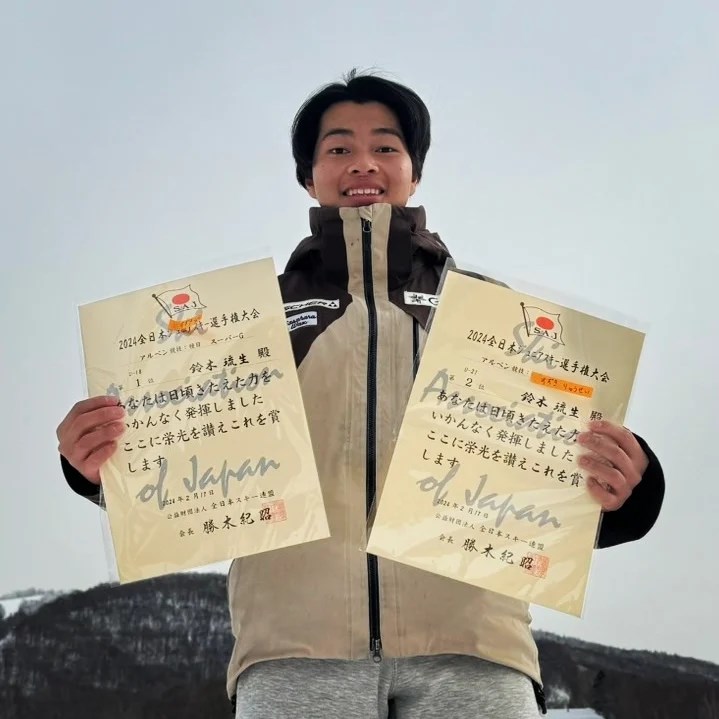 SAJ
2024全日本 選手権大会
アルペン競技:種目 スーパーG
U-18
第 1 位
鈴木 琉生 殿
あなたは日頃きたえた力を
いかんなく発揮しました
ここに栄光を讃えこれを賞
します
2024年2月17日
公益財団法人 全日本スキー連盟
会長 勝木紀昭
Ski
Association
of Japan
SAJ
2024全日本ジュニアスキー選手権大会
アルペン競技:
すずき りゅうせい
U-21
第 2 位
鈴木 琉生 殿
あなたは日頃きたえた力
いかんなく発揮しました
ここに栄光を讃えこれを賞
します
2024年2月17日
公益財団法人 全日本スキー連盟
会長 勝木紀昭
Ski
Association
of Japan